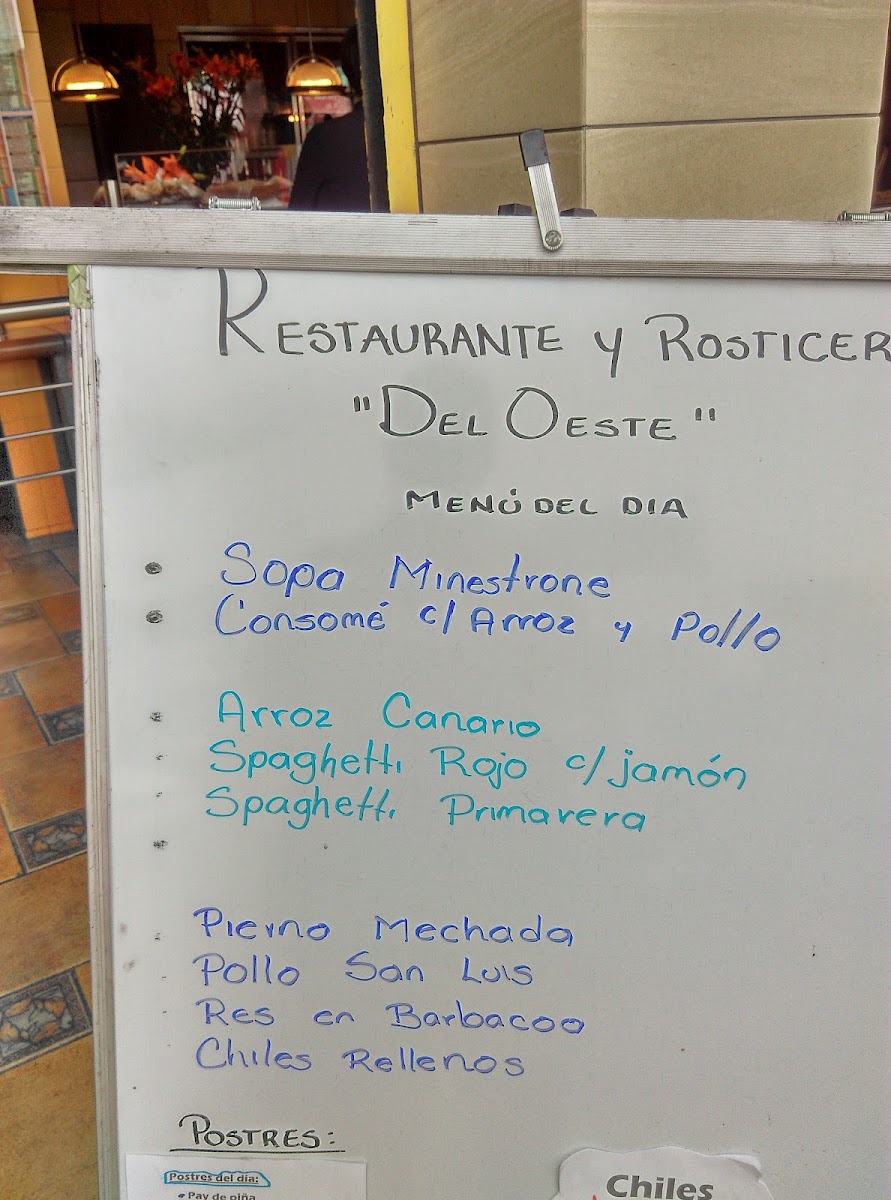 RESTAURANTE Y ROSTICER
"DEL OESTE"
MENÚ DEL DIA
• Sopa Minestrone
• Consomé c/ Arroz y Pollo
• Arroz Canario
• Spaghetti Rojo c/ jamón
• Spaghetti Primavera
•
• Pierna Mechada
• Pollo San Luis
• Res en Barbacoa
Chiles Rellenos
POSTRES:
Postres del día:
• Pay de piña
Chiles